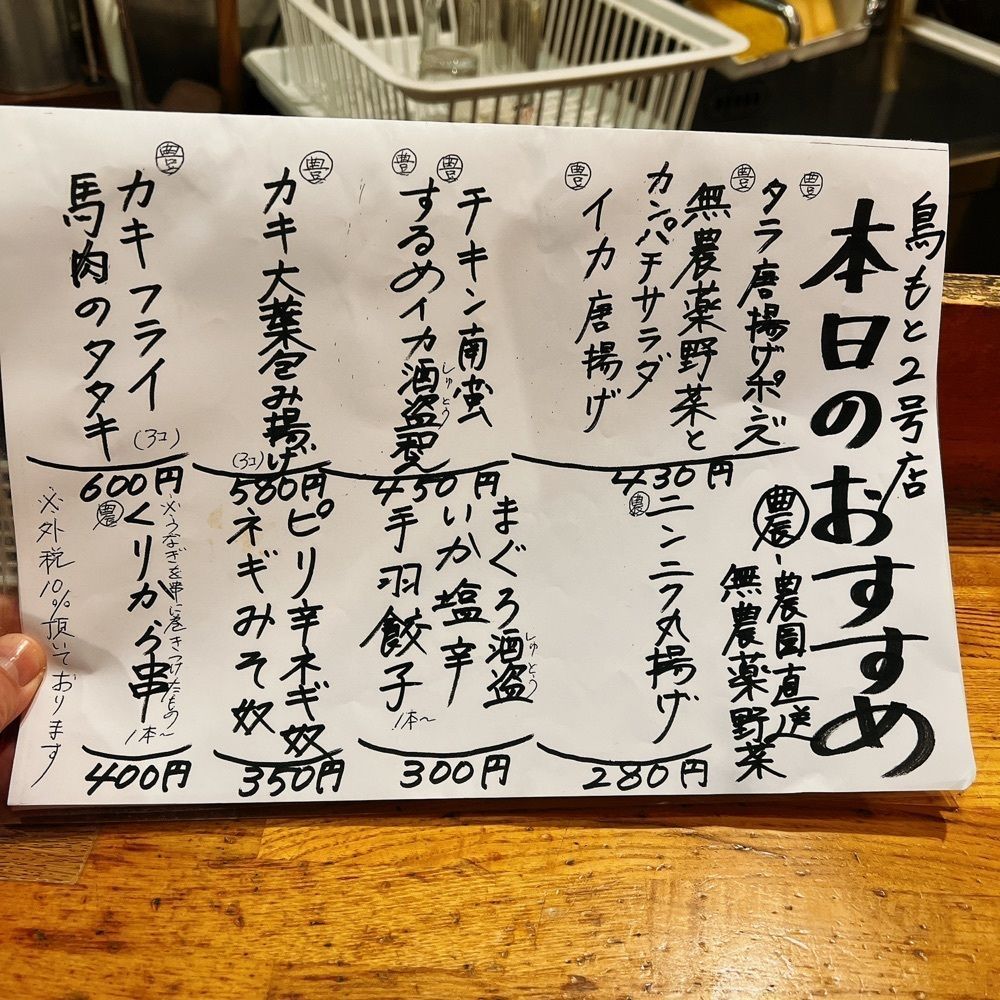 鳥もと2号店
本日のおすすめ
豊
タラ唐揚げポン酢
豊
無農薬野菜と
カンパチサラダ
豊
イカ唐揚げ
430円
豊
チキン南蛮
豊
するめイカ酒盗和え
しゅとう
450円
豊
カキ大葉包み揚げ
(3コ)
580円
豊
カキフライ
(3コ)
馬肉のタタキ
600円
農-農園直送
無農薬野菜
農
ニンニク丸揚げ
280円
まぐろ酒盗
しゅとう
いか塩辛
手羽餃子
1本〜
300円
ピリ辛ネギ奴
ネギみそ奴
350円
※うなぎを串に巻きつけたもの
農
くりから串
1本〜
400円
※外税10%頂いております